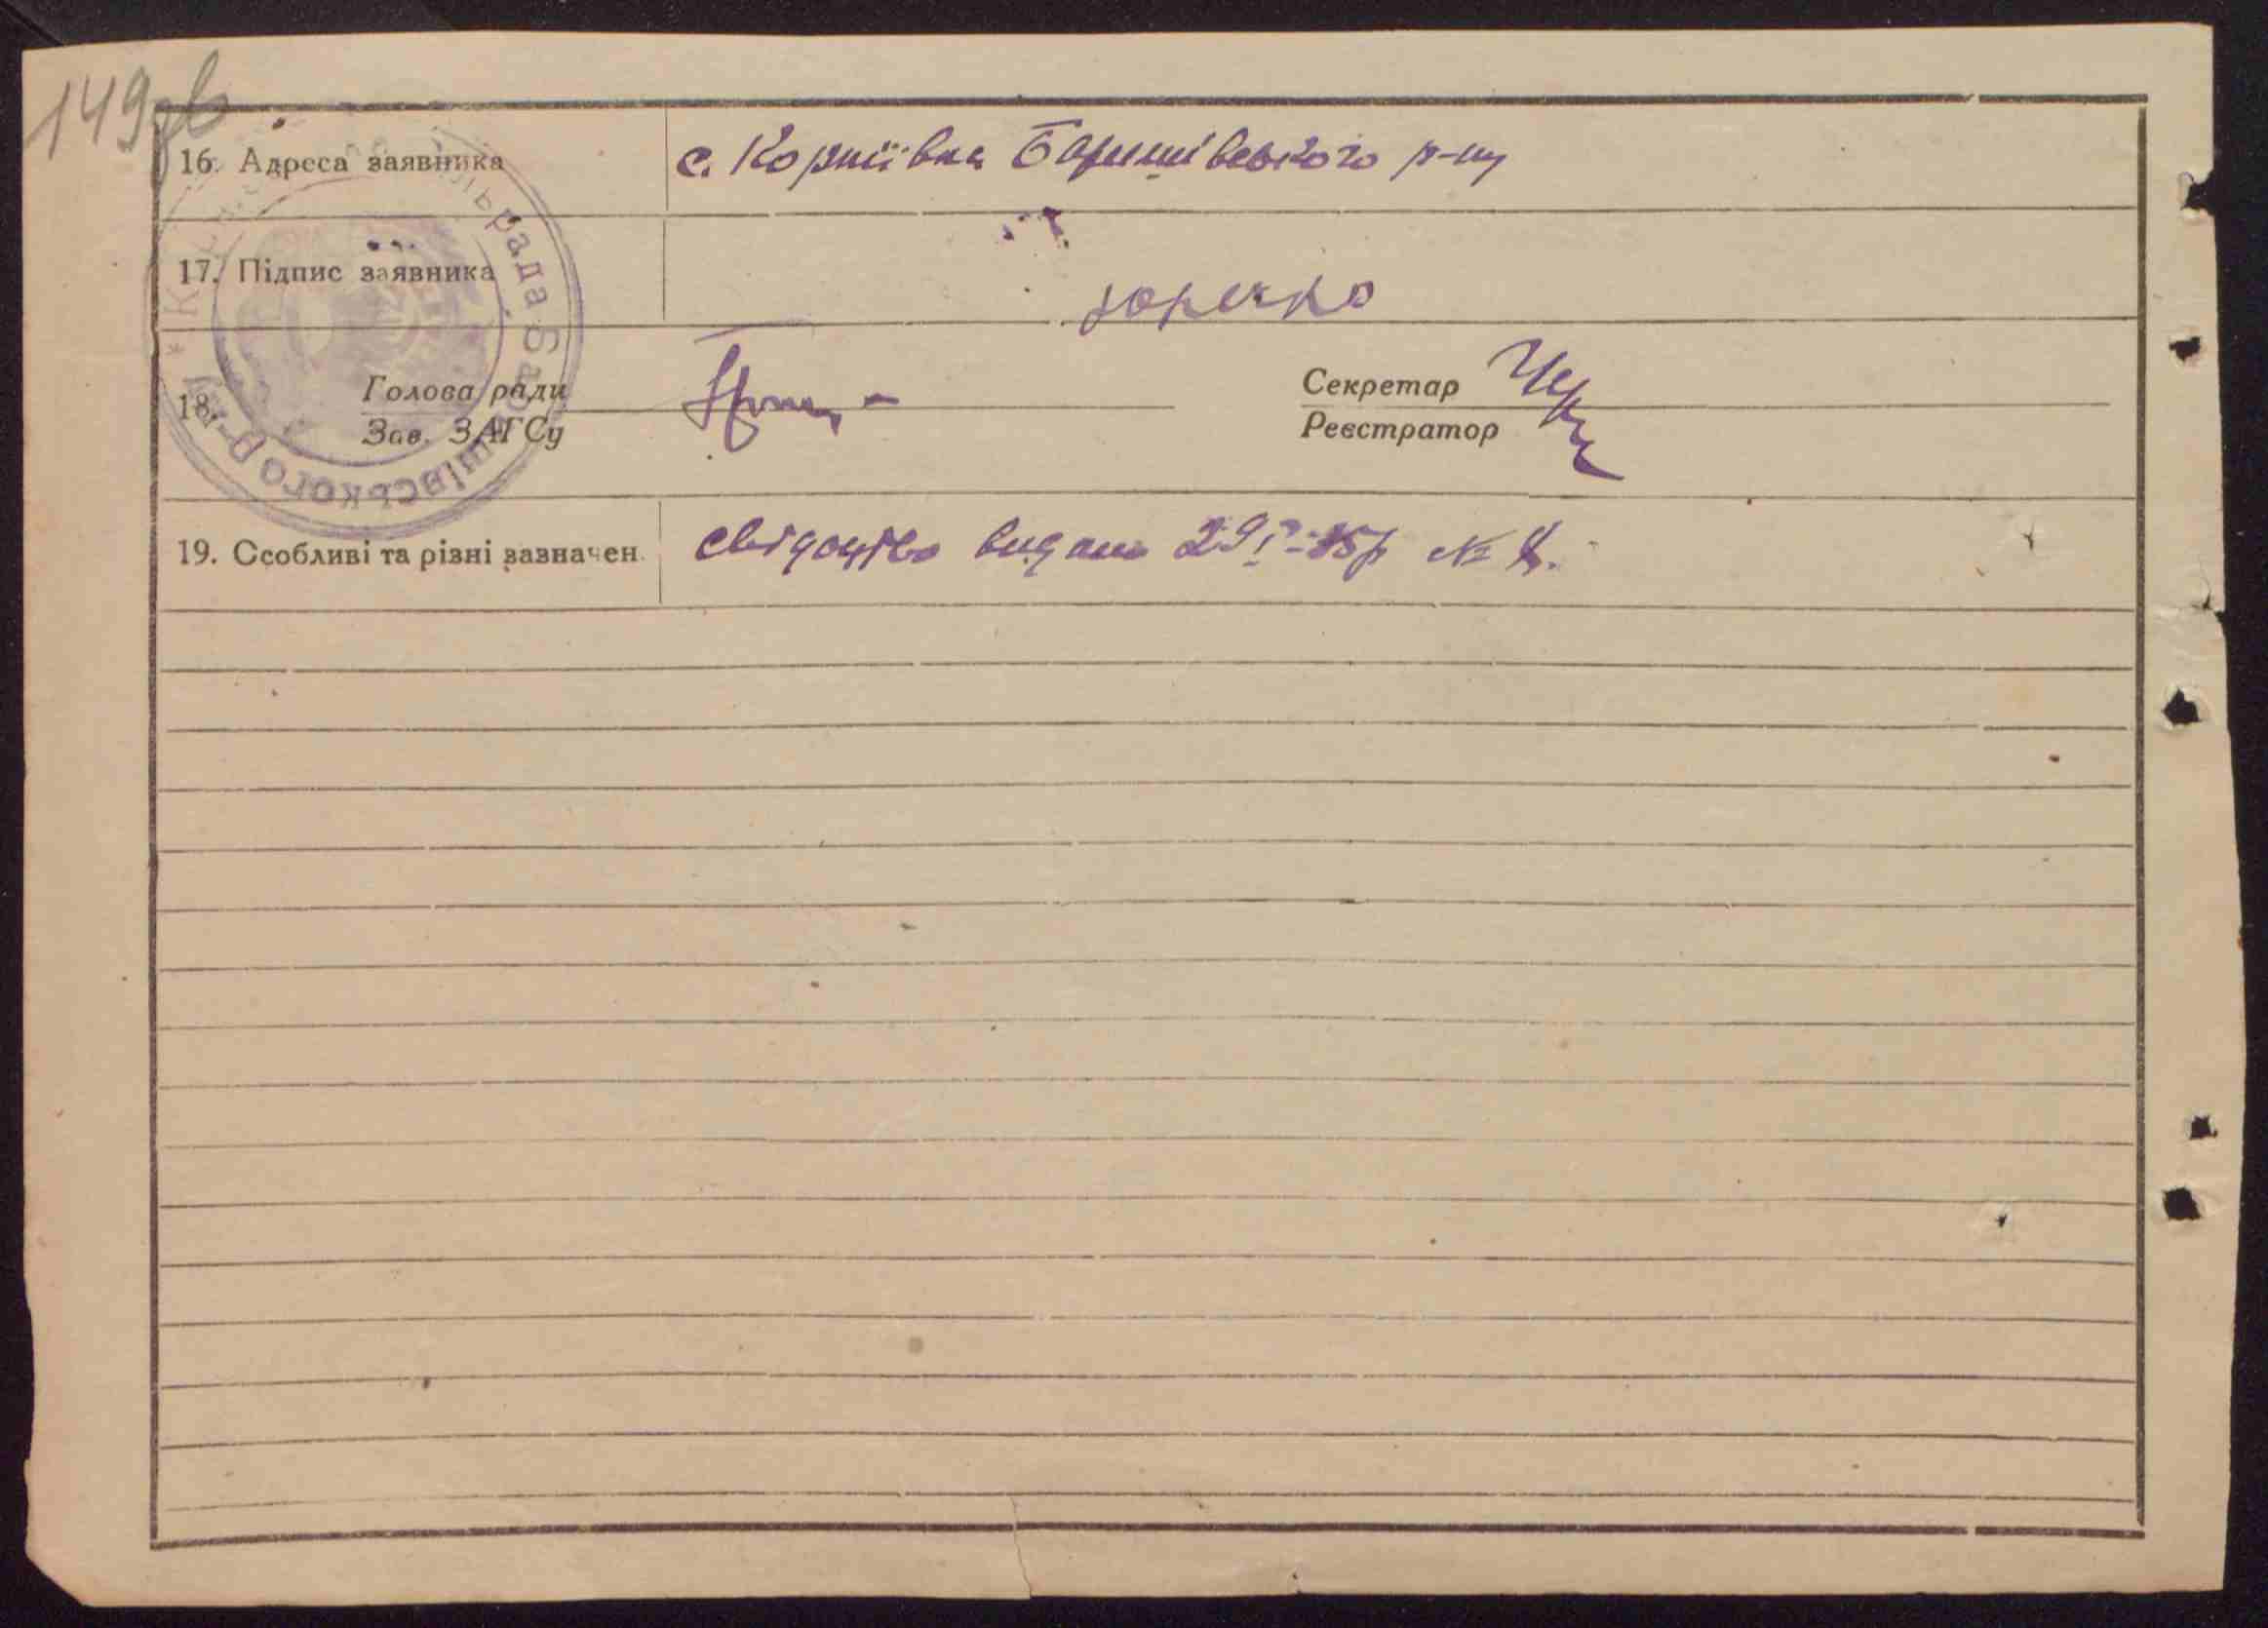 149 зв
16. Адреса заявника с. Корніївка Баришівського р-ну
17. Підпис заявника
18. Голова ради Секретар
Зав. ЗАГСу Реєстратор
19. Особливі та різні зазначен. свідоцтво видано 29 №
рада Баришівського р-ну